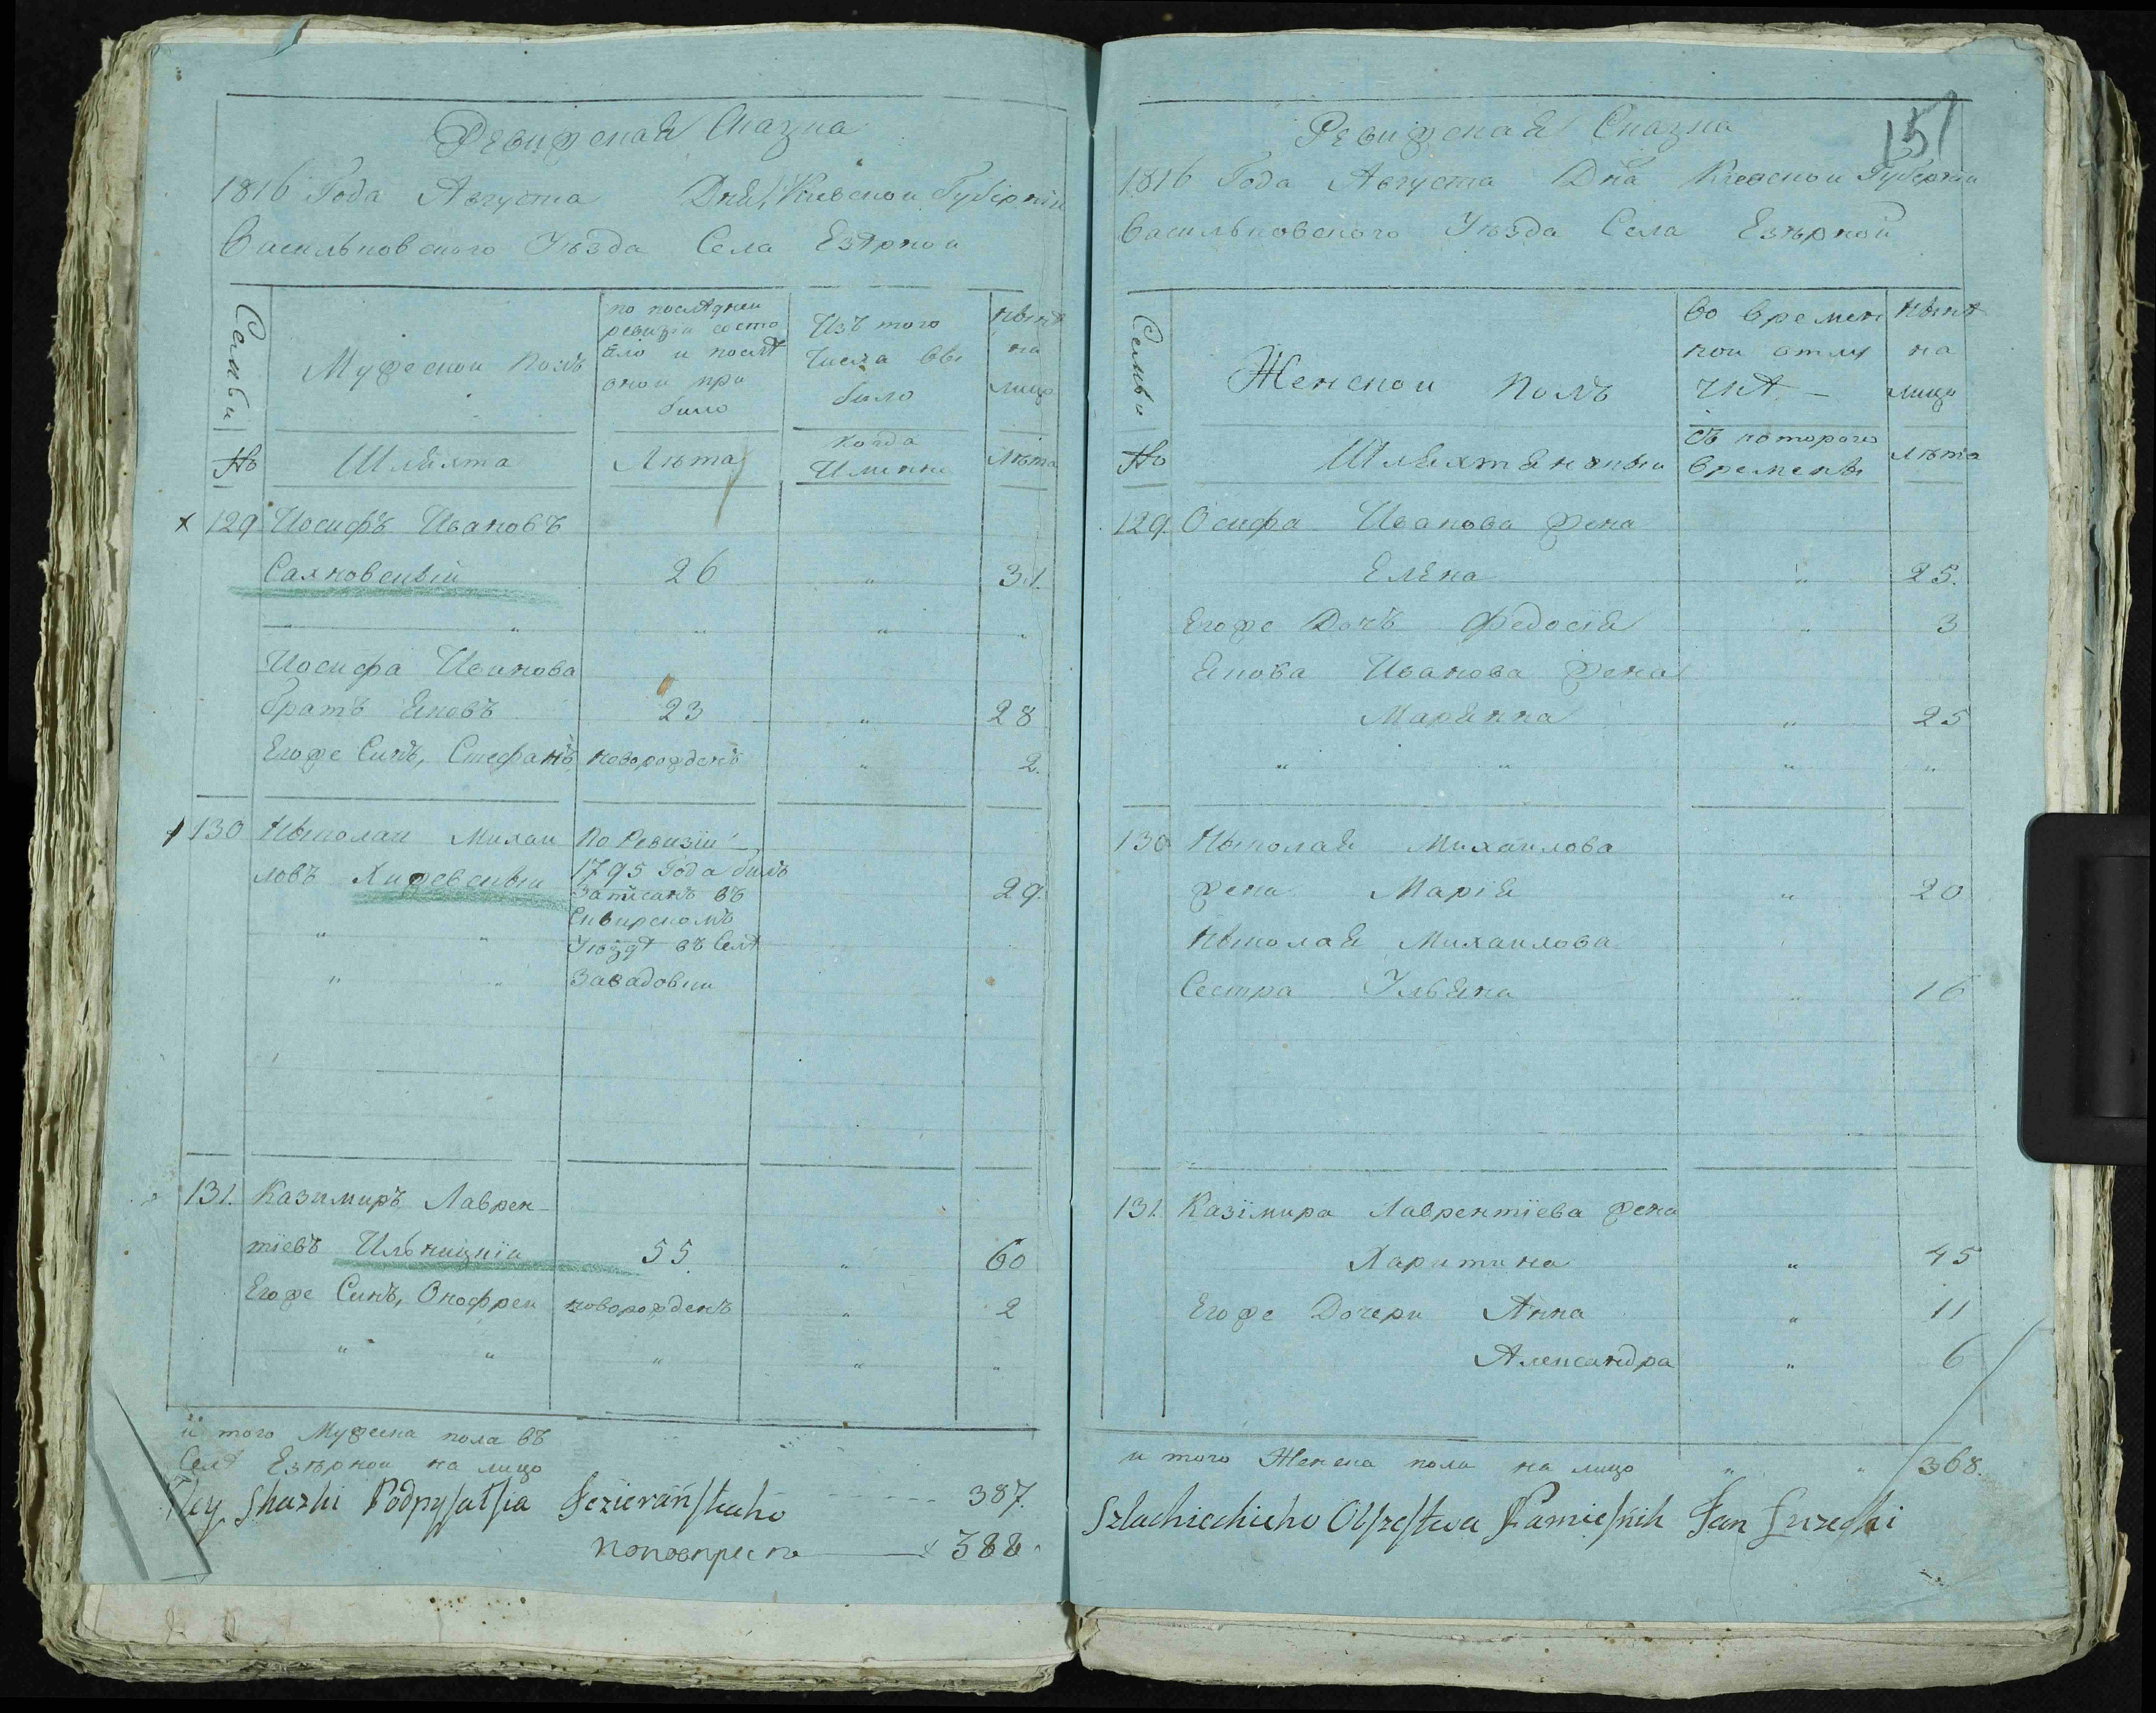 Ревизская Сказка
1816 Года Августа Дня, Киевской Губернии
Васильковского Уѣзда Села Езѣрной
Семьи
Мужеской Полъ
по послѣдней
ревизіи состо
яло и послѣ
оной при
было
Изъ того
Числа вы
было
нынѣ
на
лицо
№
Шляхта
Лѣта
когда
Именно
Лѣта
129 Иосифъ Ивановъ
Сахновскый 26 „ 31.
„ „ „ „
Иосифа Иванова
братъ Яковъ 23 „ 28
Егоже Синъ, Стефанъ новорожденъ „ 2.
130 Ныколай Михаи По Ревизіи
ловъ Хижевскый 1795 Года билъ 29.
Записанъ въ
„ „ Уѣздѣ въ Селѣ
„ „ Завадовки
131. Казимиръ Лаврен-
тіевъ Ильницкій 55. „ 60
Егоже Синъ, Онофрей новорожденъ „ 2
„ „ „ „ „
и того Мужеска пола въ
Селѣ Езѣрной на лицо 387.
Skazki Podpysałsia Jezierańskoho
388
151
Ревизская Сказка
1816 Года Августа Дня Киевской Губернии
Васильковского Уѣзда Села Езѣрной
Семьи
Женской Полъ
во времен
ной отлу
чкѣ
нынѣ
на
лицо
№
Шляхтянкы
съ которого
времены
Лѣта
129. Осифа Иванова жена
Елена „ 25.
Егоже Дочь Федосія „ 3
Якова Иванова жена
Марянна „ 25
„ „ „ „
130 Ныколая Михайлова
жена Марія „ 20
Ныколая Михайлова
Сестра Ульяна „ 16
131. Казімира Лаврентіева жена
Харитина „ 45
Егоже Дочери Анна „ 11
Александра „ 6
и того Женска пола на лицо „ „ 368.
Szlachieckieho Obszestwa Namiesnik Jan